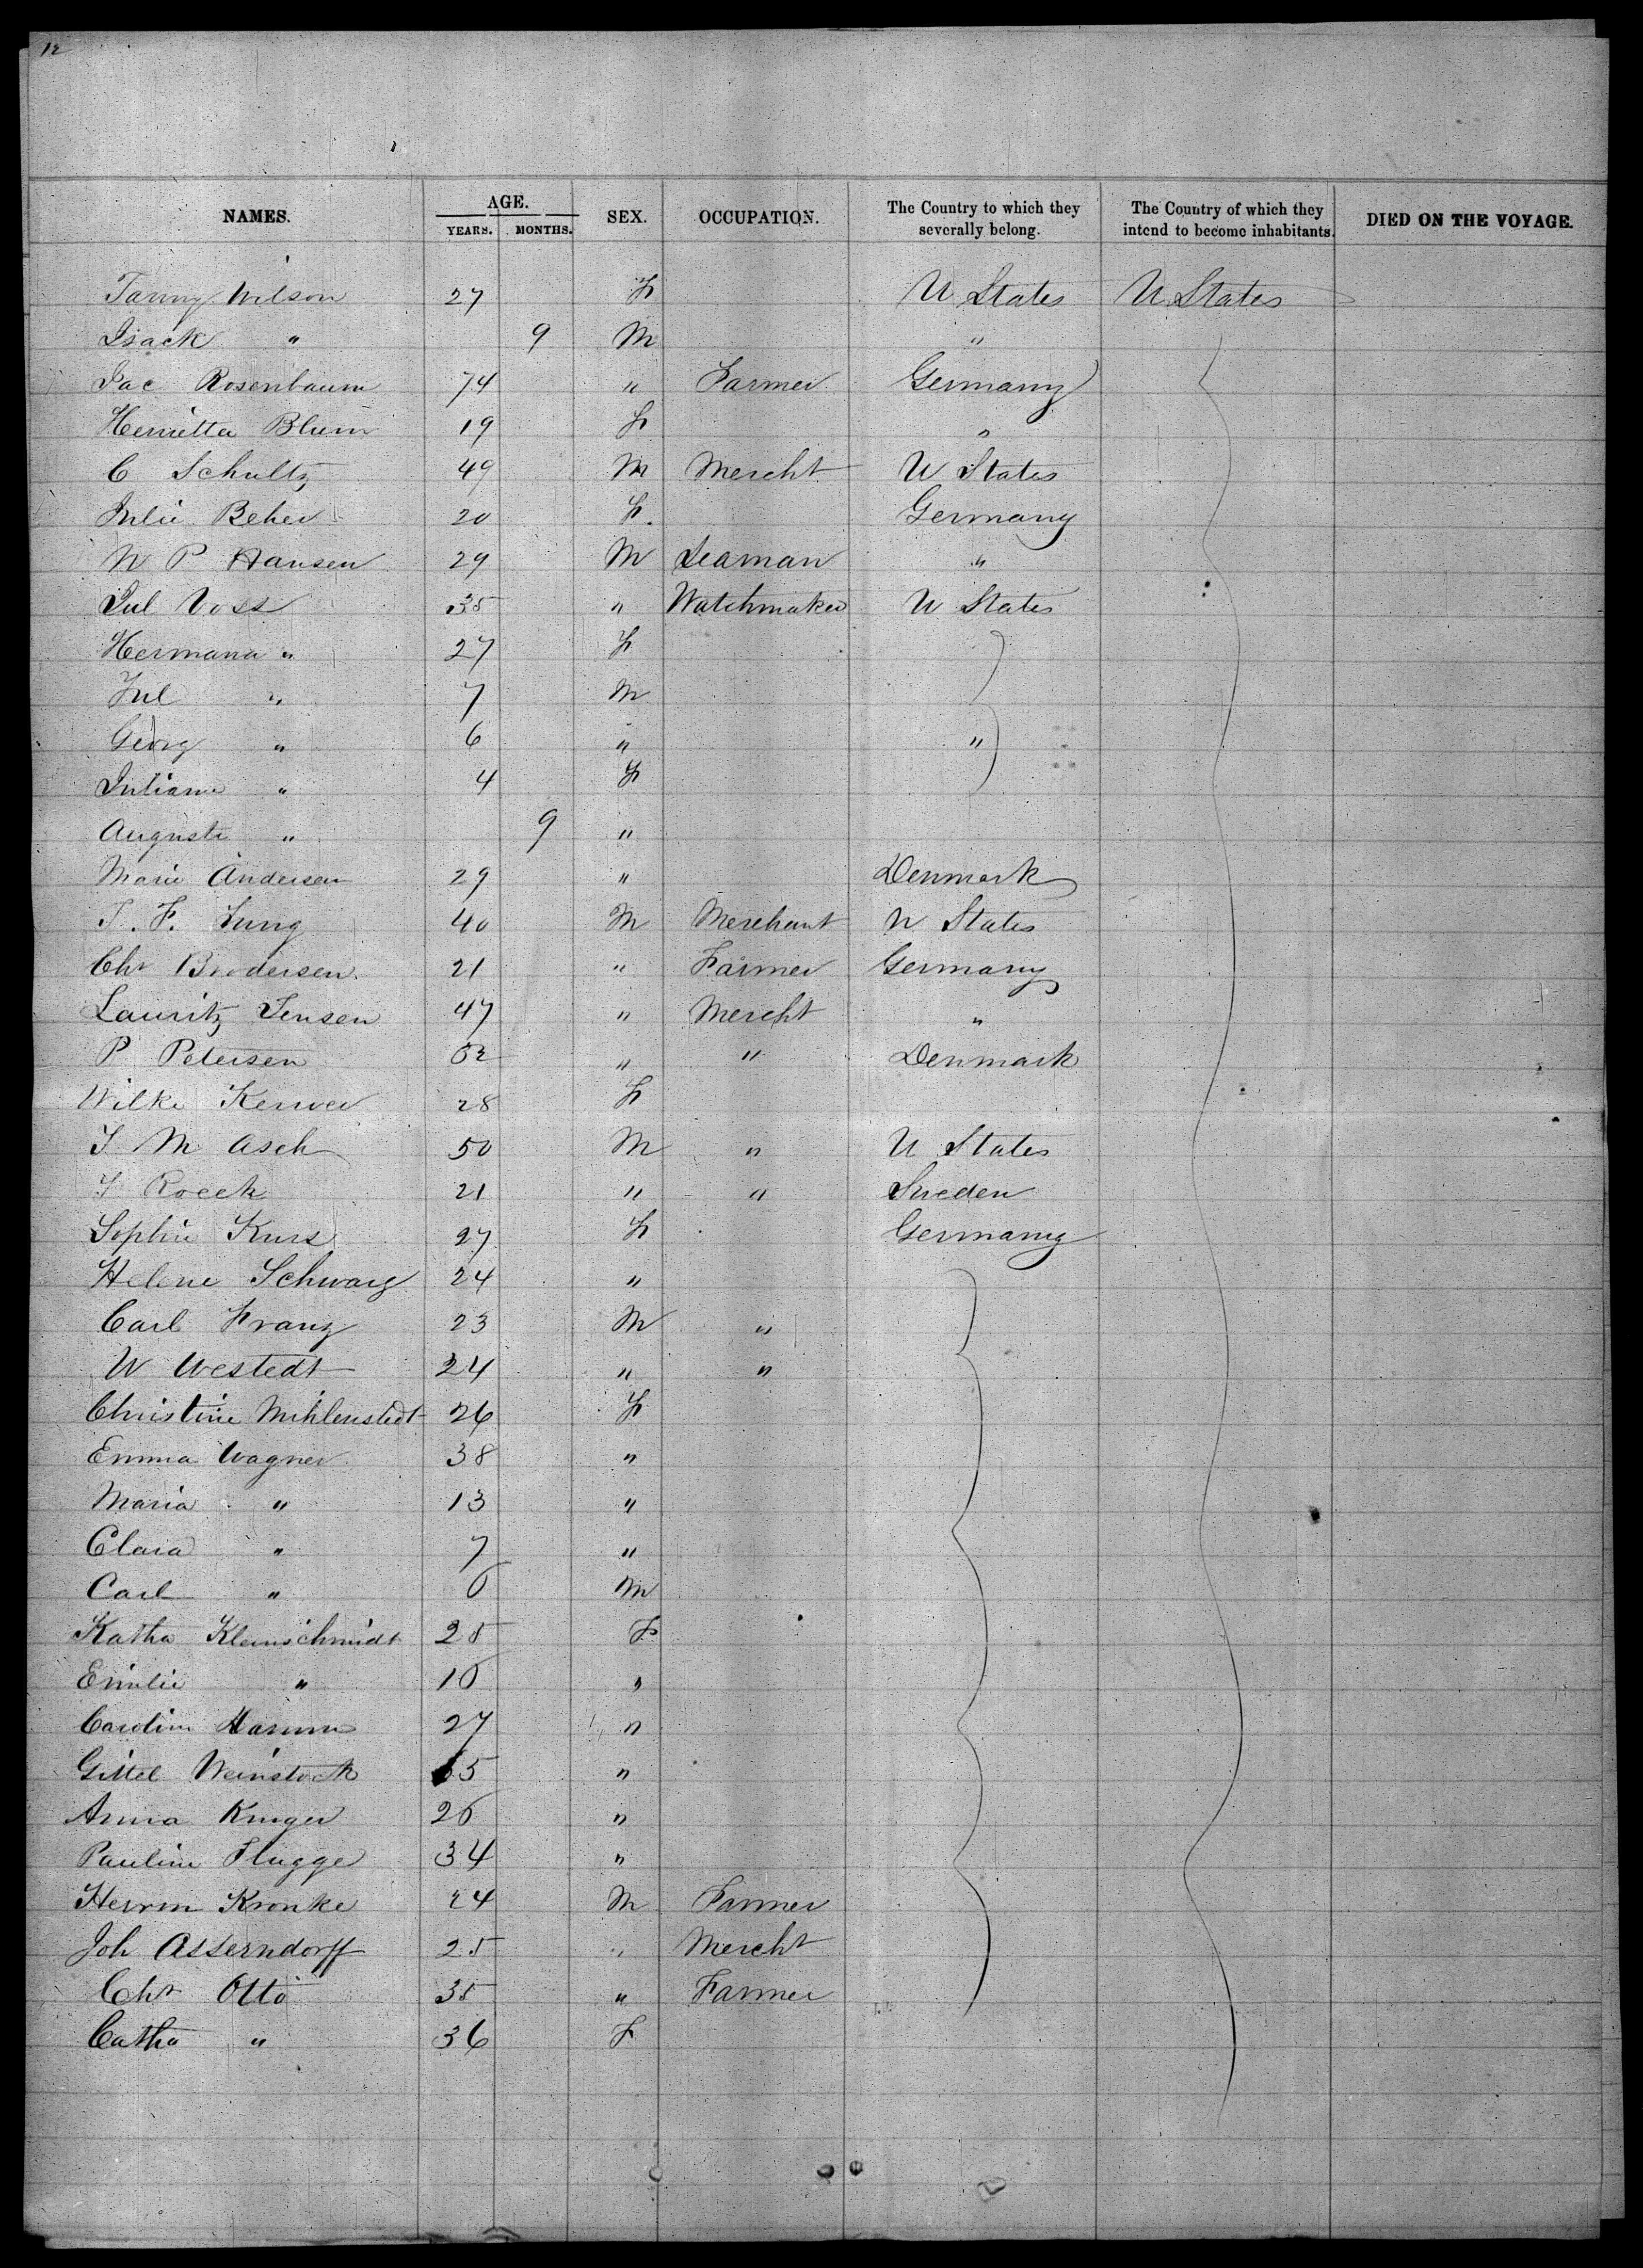 12
NAMES. AGE. YEARS. MONTHS. SEX. OCCUPATION. The Country to which they severally belong. The Country of which they intend to become inhabitants. DIED ON THE VOYAGE.
Fanny Wilson 27 F U States U States
Isack " 9 M "
Isac Rosenbaum 74 " Farmer Germany
Henrietta Blum 19 F "
C Schultz 49 M Mercht U States
Julie Beher 20 F. Germany
N P Hansen 29 M Seaman "
Jul Voss 35 " Watchmaker U States
Hermana " 27 F
Jul " 7 M
Georg " 6 " "
Juliane " 4 F
Auguste " 9 "
Marie Andersen 29 " Denmark
J. F. Jung 40 M Merchant U States
Chr Brodersen 21 " Farmer Germany
Lauritz Jensen 47 " Mercht "
P Petersen 52 " " Denmark
Wilke 28 F
J M Asch 50 M " U States
21 " " Sweden
Sophie Kurs 27 F Germany
Helene Schwarz 24 "
Carl Franz 23 M "
W Westedt 24 " "
Christine Mihlenstedt 26 F
Emma Wagner 38 "
Maria " 13 "
Clara " 7 "
Carl " 6 M
Katha Kleinschmidt 25 F
Emilie " 10 "
Carolin 27 "
Gittel Weinstock 55 "
Anna Kruger 26 "
Pauline Flugge 34 "
Herrm Kronke 24 M Farmer
Joh Asserndorff 25 " Mercht
Chr Otto 35 " Farmer
Catha " 36 F